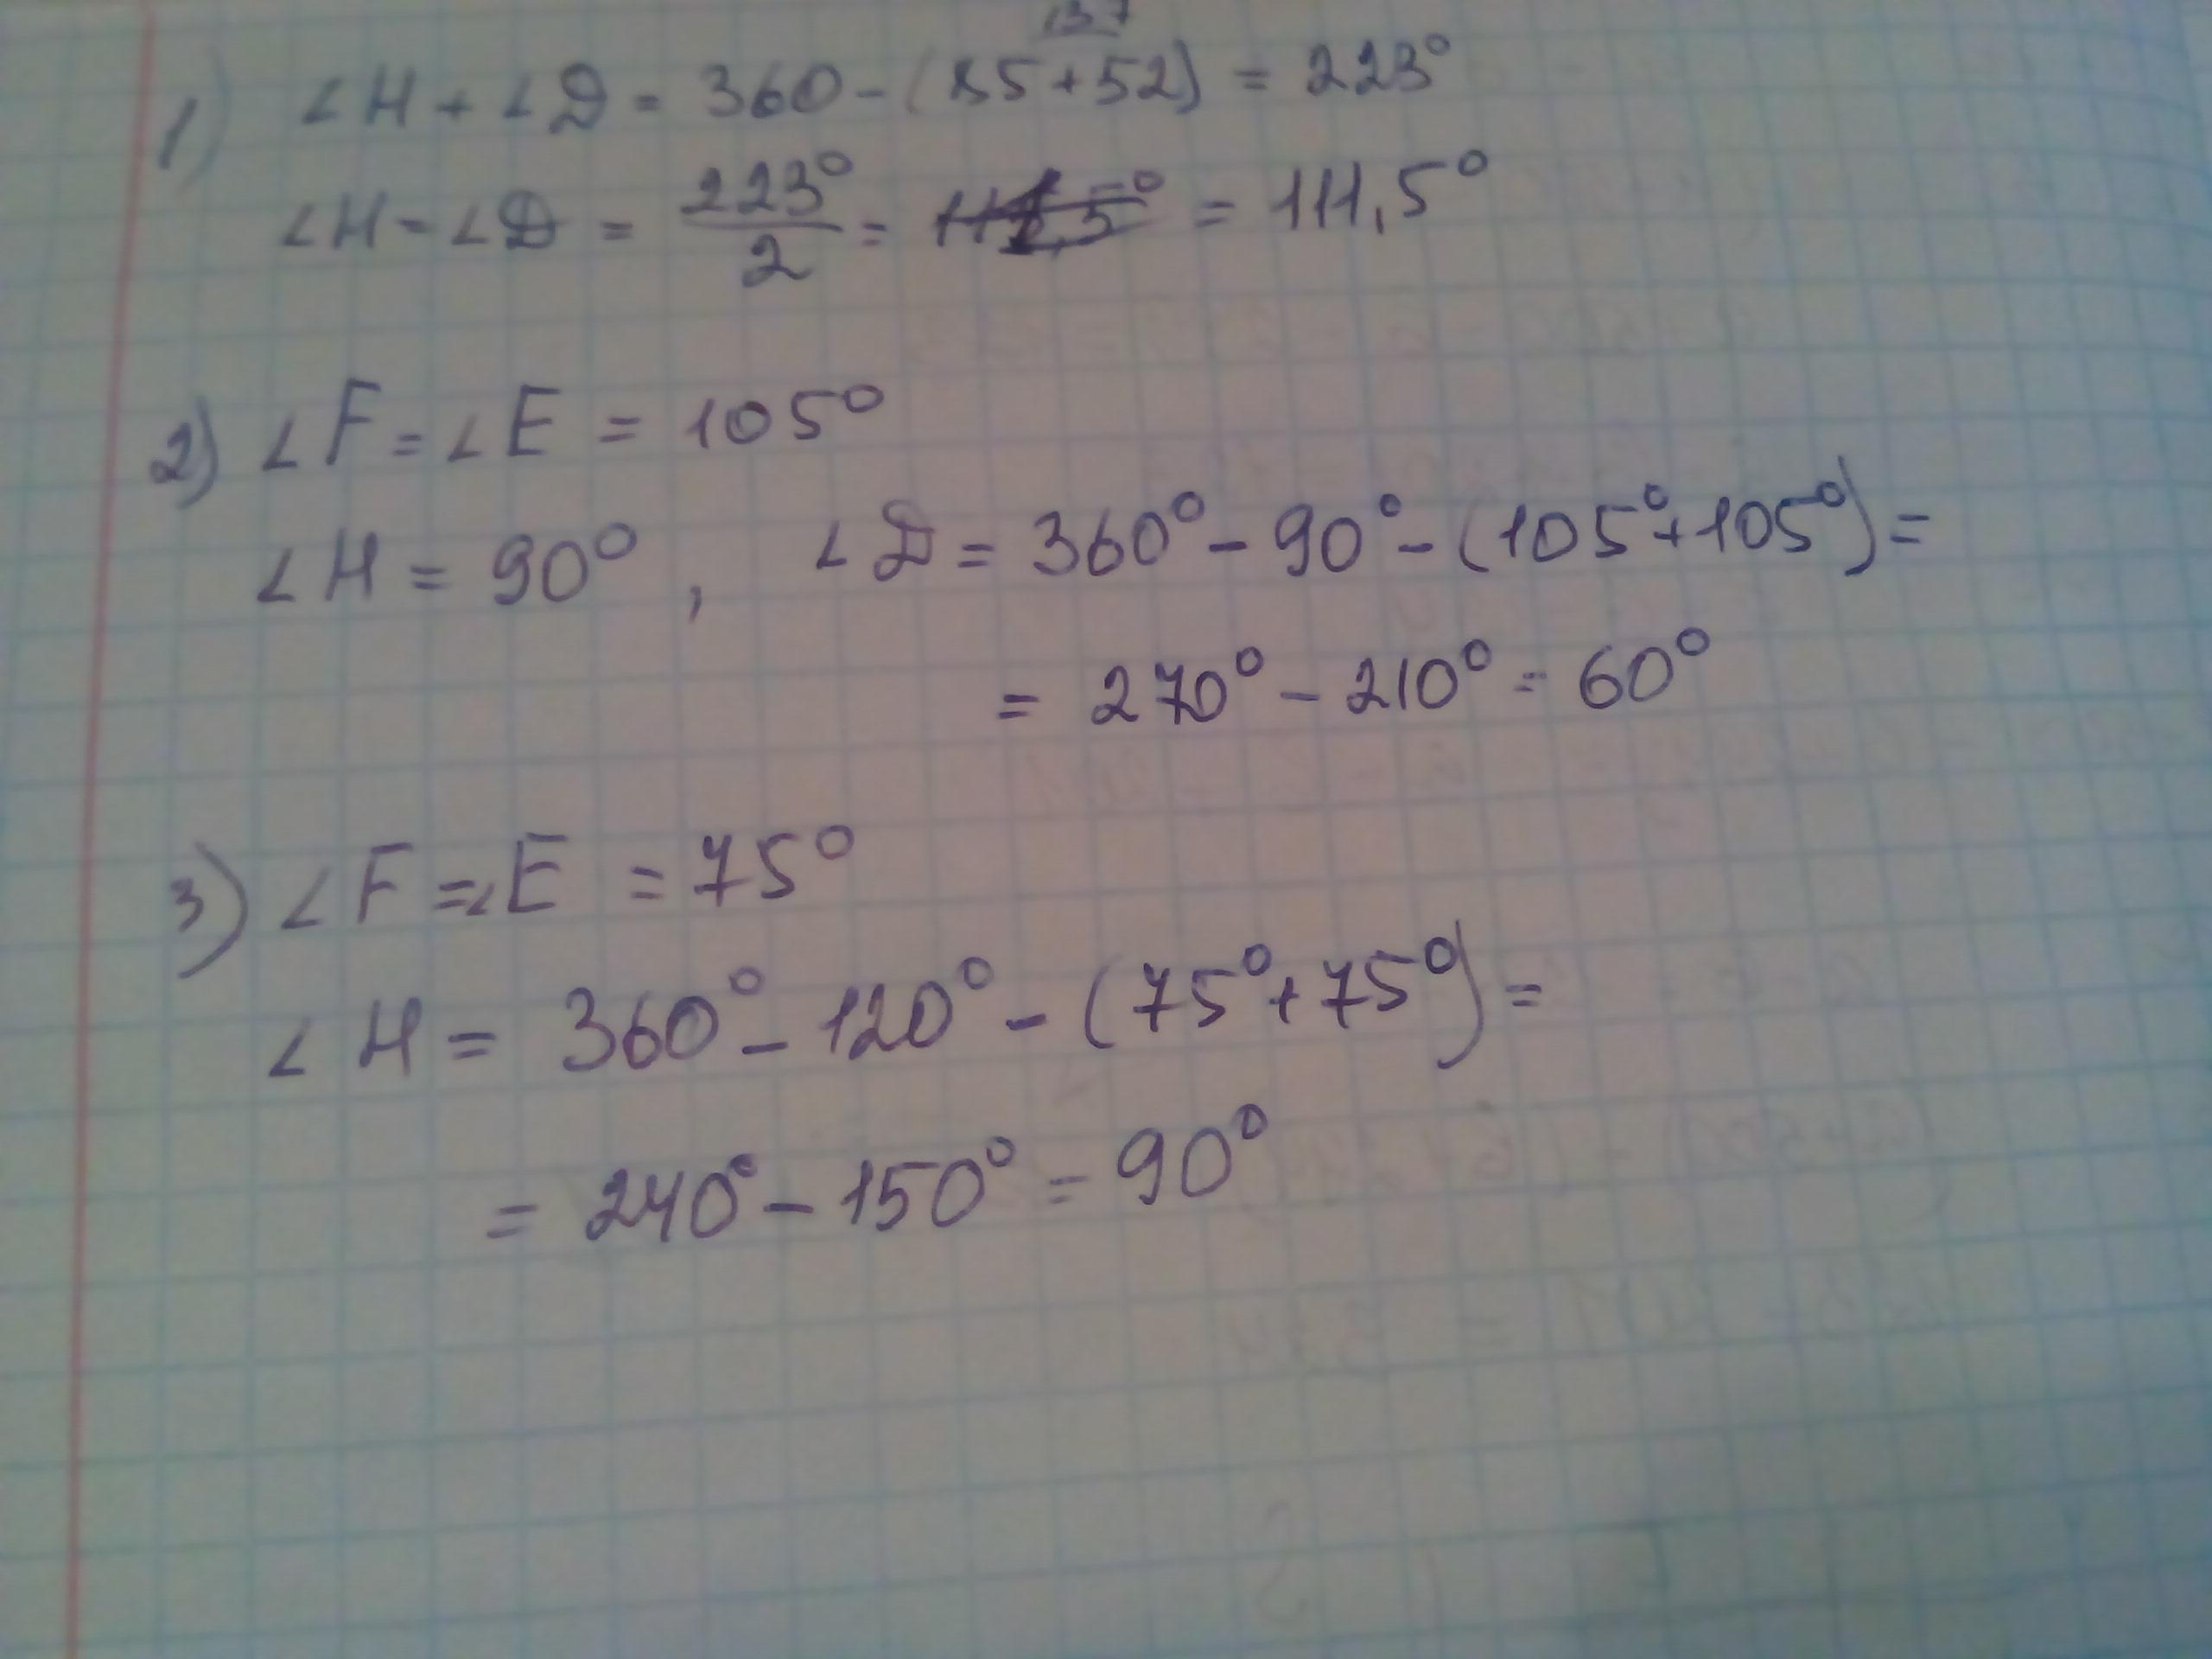 137
1) ∠H + ∠D = 360 - (85 + 52) = 223°
∠H = ∠D = 223°/2 = = 111,5°
2) ∠F = ∠E = 105°
∠H = 90° , ∠D = 360° - 90° - (105° + 105°) =
= 270° - 210° = 60°
3) ∠F = ∠E = 75°
∠H = 360° - 120° - (75° + 75°) =
= 240° - 150° = 90°